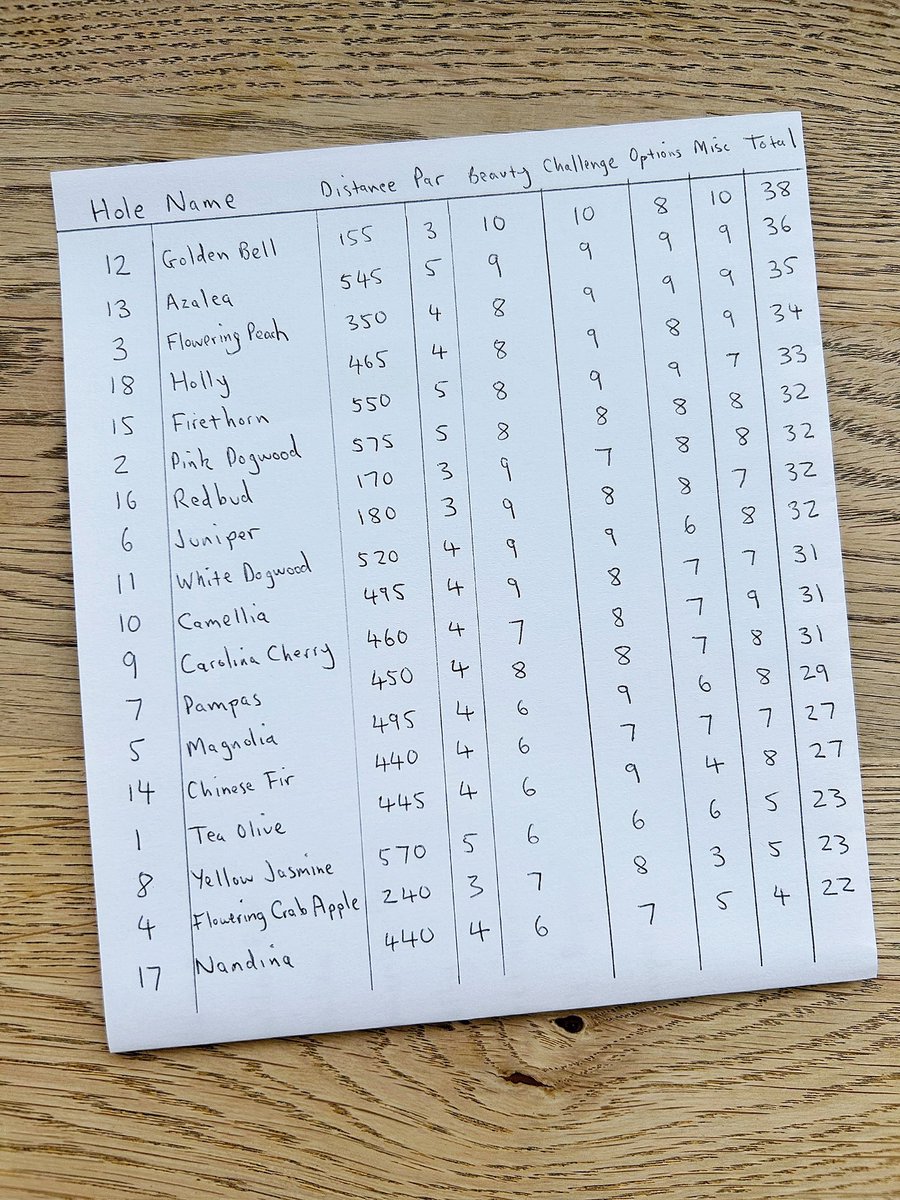 Hole Name Distance Par Beauty Challenge Options Misc Total
12 Golden Bell 155 3 10 10 8 10 38
13 Azalea 545 5 9 9 9 9 36
3 Flowering Peach 350 4 8 9 9 9 35
18 Holly 465 4 8 9 8 9 34
15 Firethorn 550 5 8 9 9 7 33
2 Pink Dogwood 575 5 8 8 8 8 32
16 Redbud 170 3 9 7 8 8 32
6 Juniper 180 3 9 8 8 7 32
11 White Dogwood 520 4 9 9 6 8 32
10 Camellia 495 4 9 8 7 7 31
9 Carolina Cherry 460 4 7 8 7 9 31
7 Pampas 450 4 8 8 7 8 31
5 Magnolia 495 4 6 9 6 8 29
14 Chinese Fir 440 4 6 7 7 7 27
1 Tea Olive 445 4 6 9 4 8 27
8 Yellow Jasmine 570 5 6 6 6 5 23
4 Flowering Crab Apple 240 3 7 8 3 5 23
17 Nandina 440 4 6 7 5 4 22